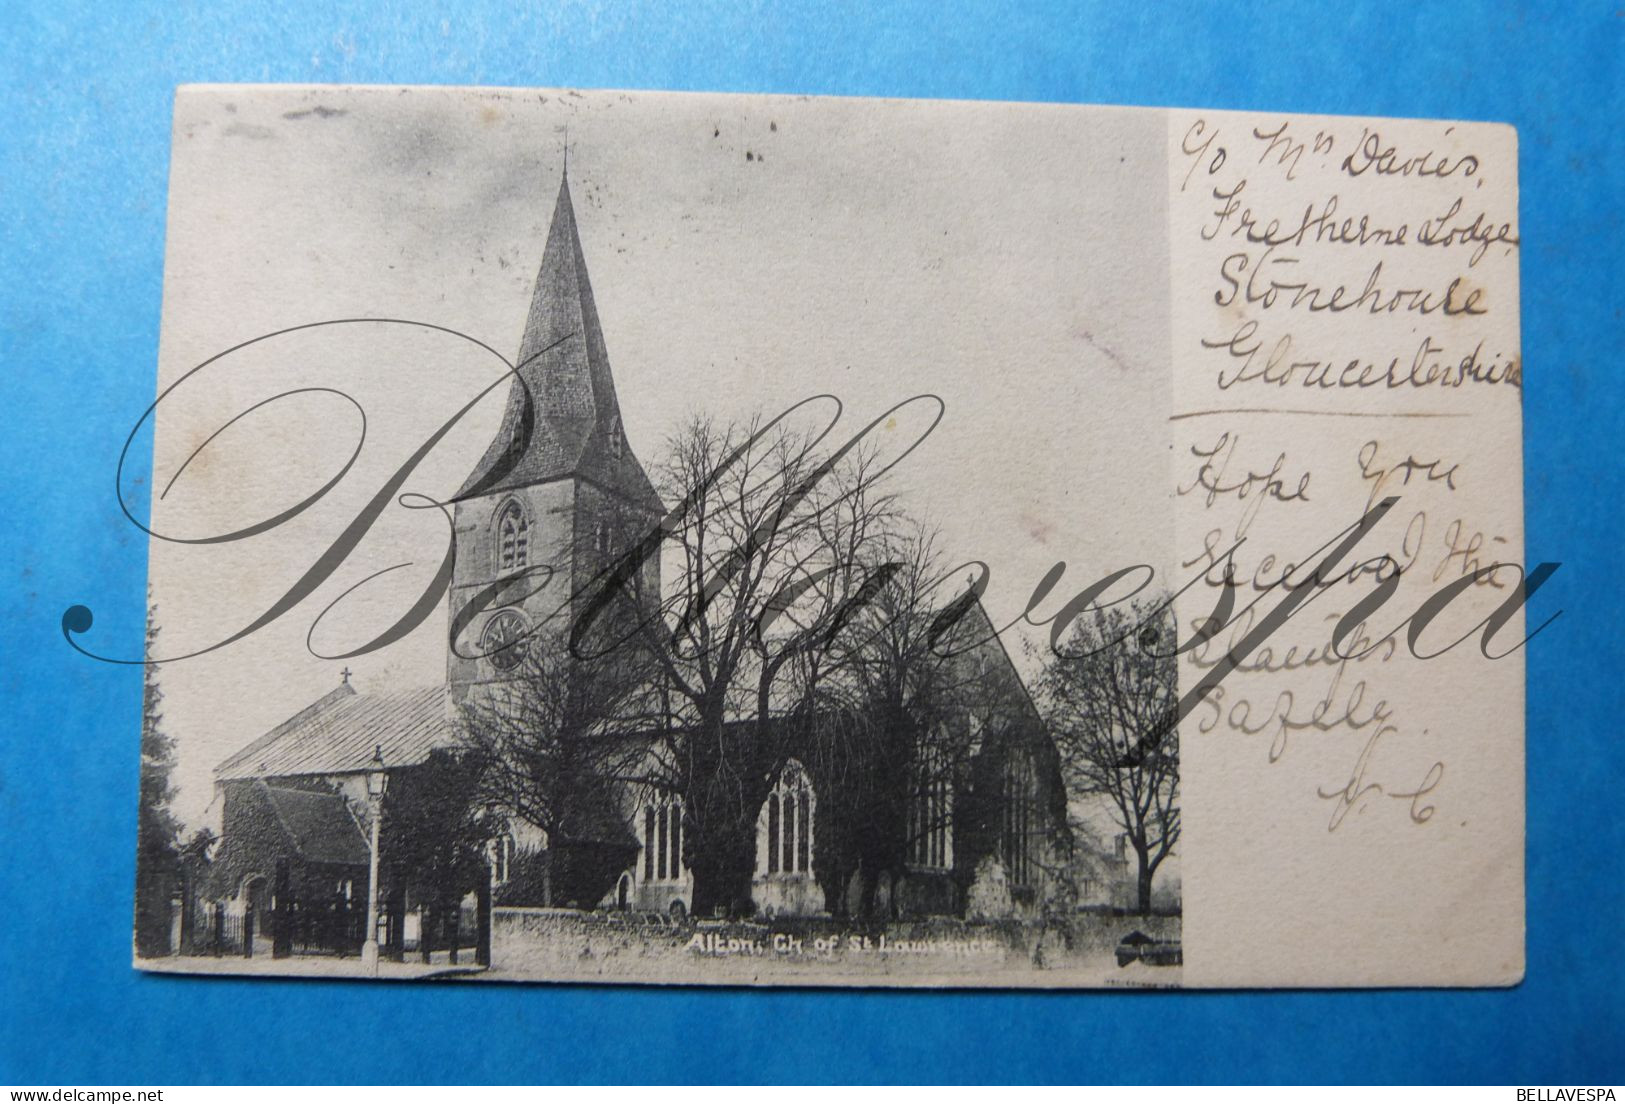 c/o Mrs Davies,
Fretherne Lodge
Stonehouse
Gloucestershire
Hope you
received the
Stamps
Safely.
Alton: Ch of St Lawrence.
Bellavespa
BELLAVESPA